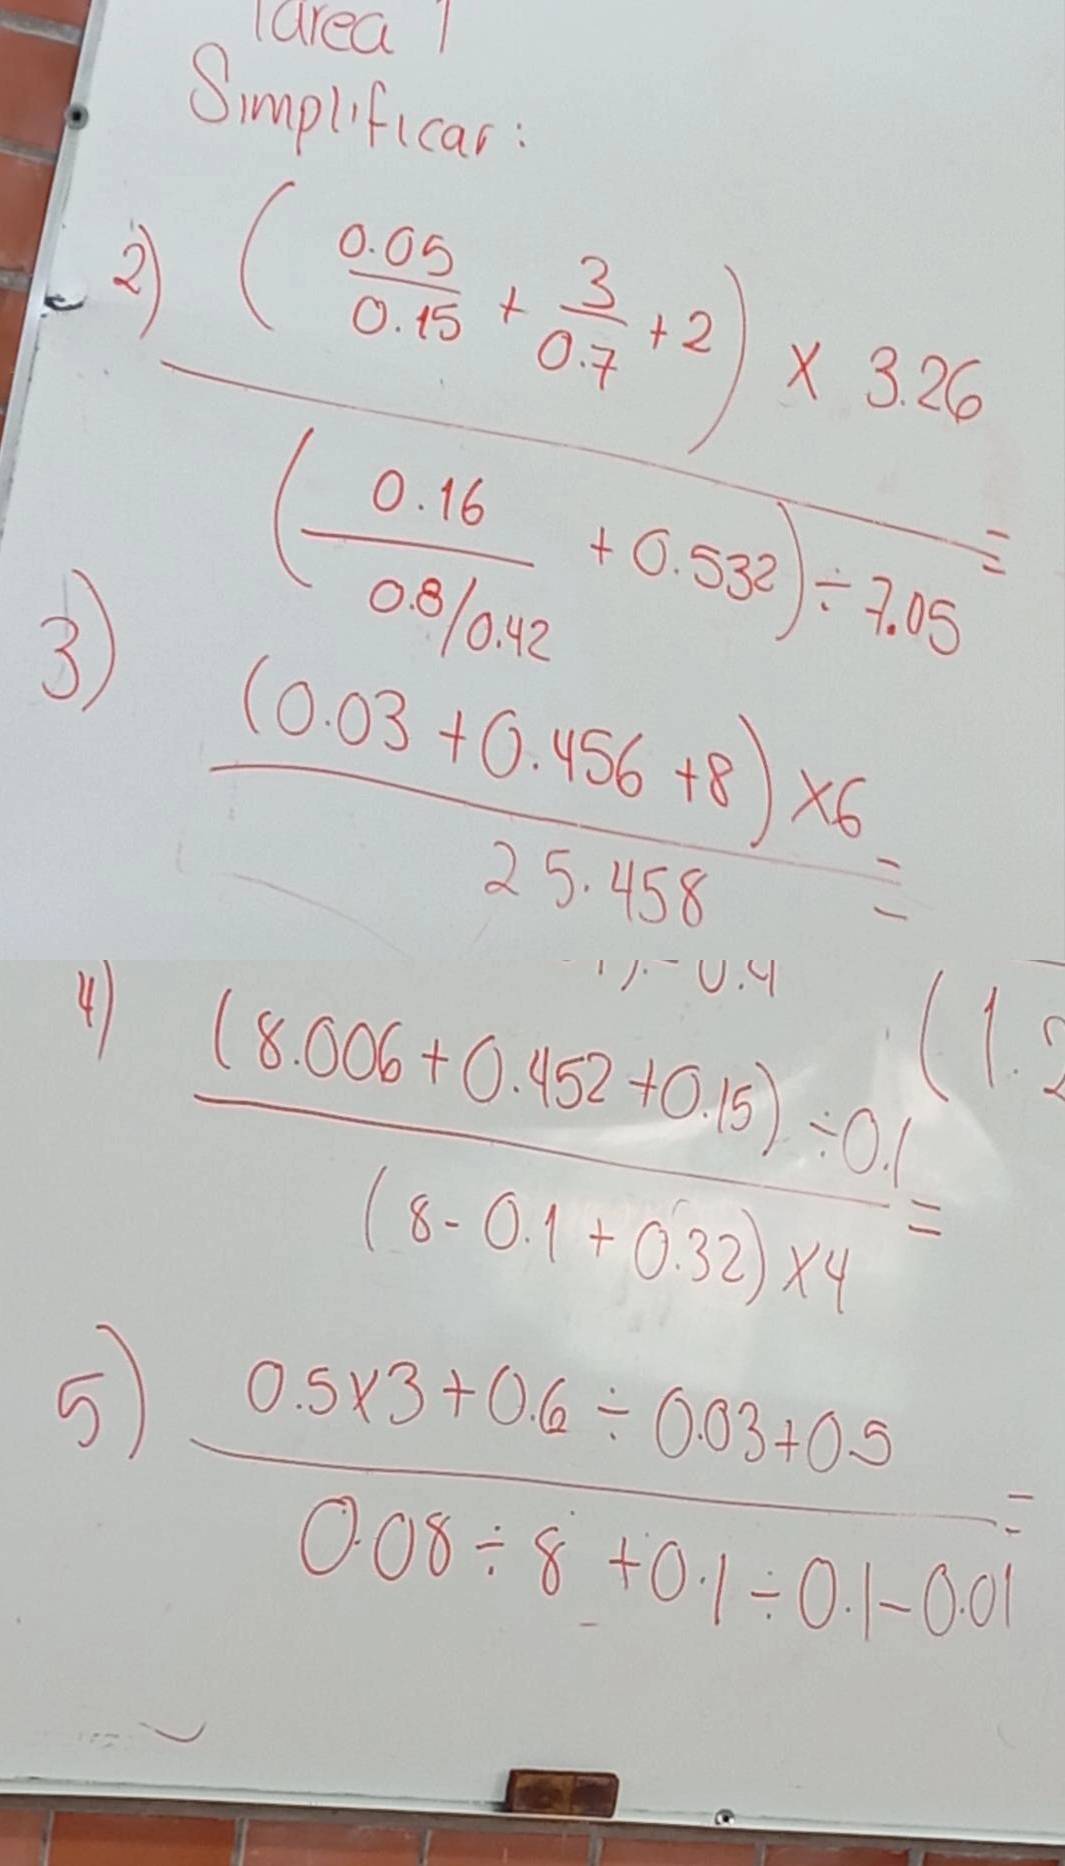 Tarea 1
Simplificar:
2) (0.05/0.15 + 3/0.7 + 2) x 3.26
(0.16/(0.8/0.42) + 0.532) ÷ 7.05 =
3) (0.03 + 0.456 + 8) x 6
25.458 =
4) (8.006 + 0.452 + 0.15) ÷ 0.1
(8 - 0.1 + 0.32) x 4 =
5) 0.5 x 3 + 0.6 ÷ 0.03 + 0.5
0.08 ÷ 8 + 0.1 ÷ 0.1 - 0.01 =